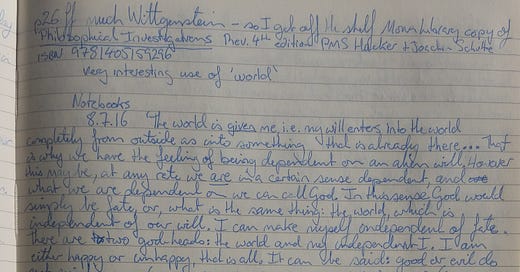 p26 ff much Wittgenstein - so I get off the shelf Library copy of
Philosophical Investigations Rev. 4th edition PMS Hacker + Joachim Schulte
ISBN 9781405159296
very interesting use of 'world'
Notebooks
8.7.16 The world is given me, i.e. my will enters into the world
completely from outside as into something that is already there... That
is why we have the feeling of being dependent on an alien will. However
this may be, at any rate we are in a certain sense dependent, and
what we are dependent on we can call God. In this sense God would
simply be fate, or, what is the same thing: the world, which is
independent of our will. I can make myself independent of fate.
There are two godheads: the world and my independent I. I am
either happy or unhappy, that is all. It can be said: good or evil do